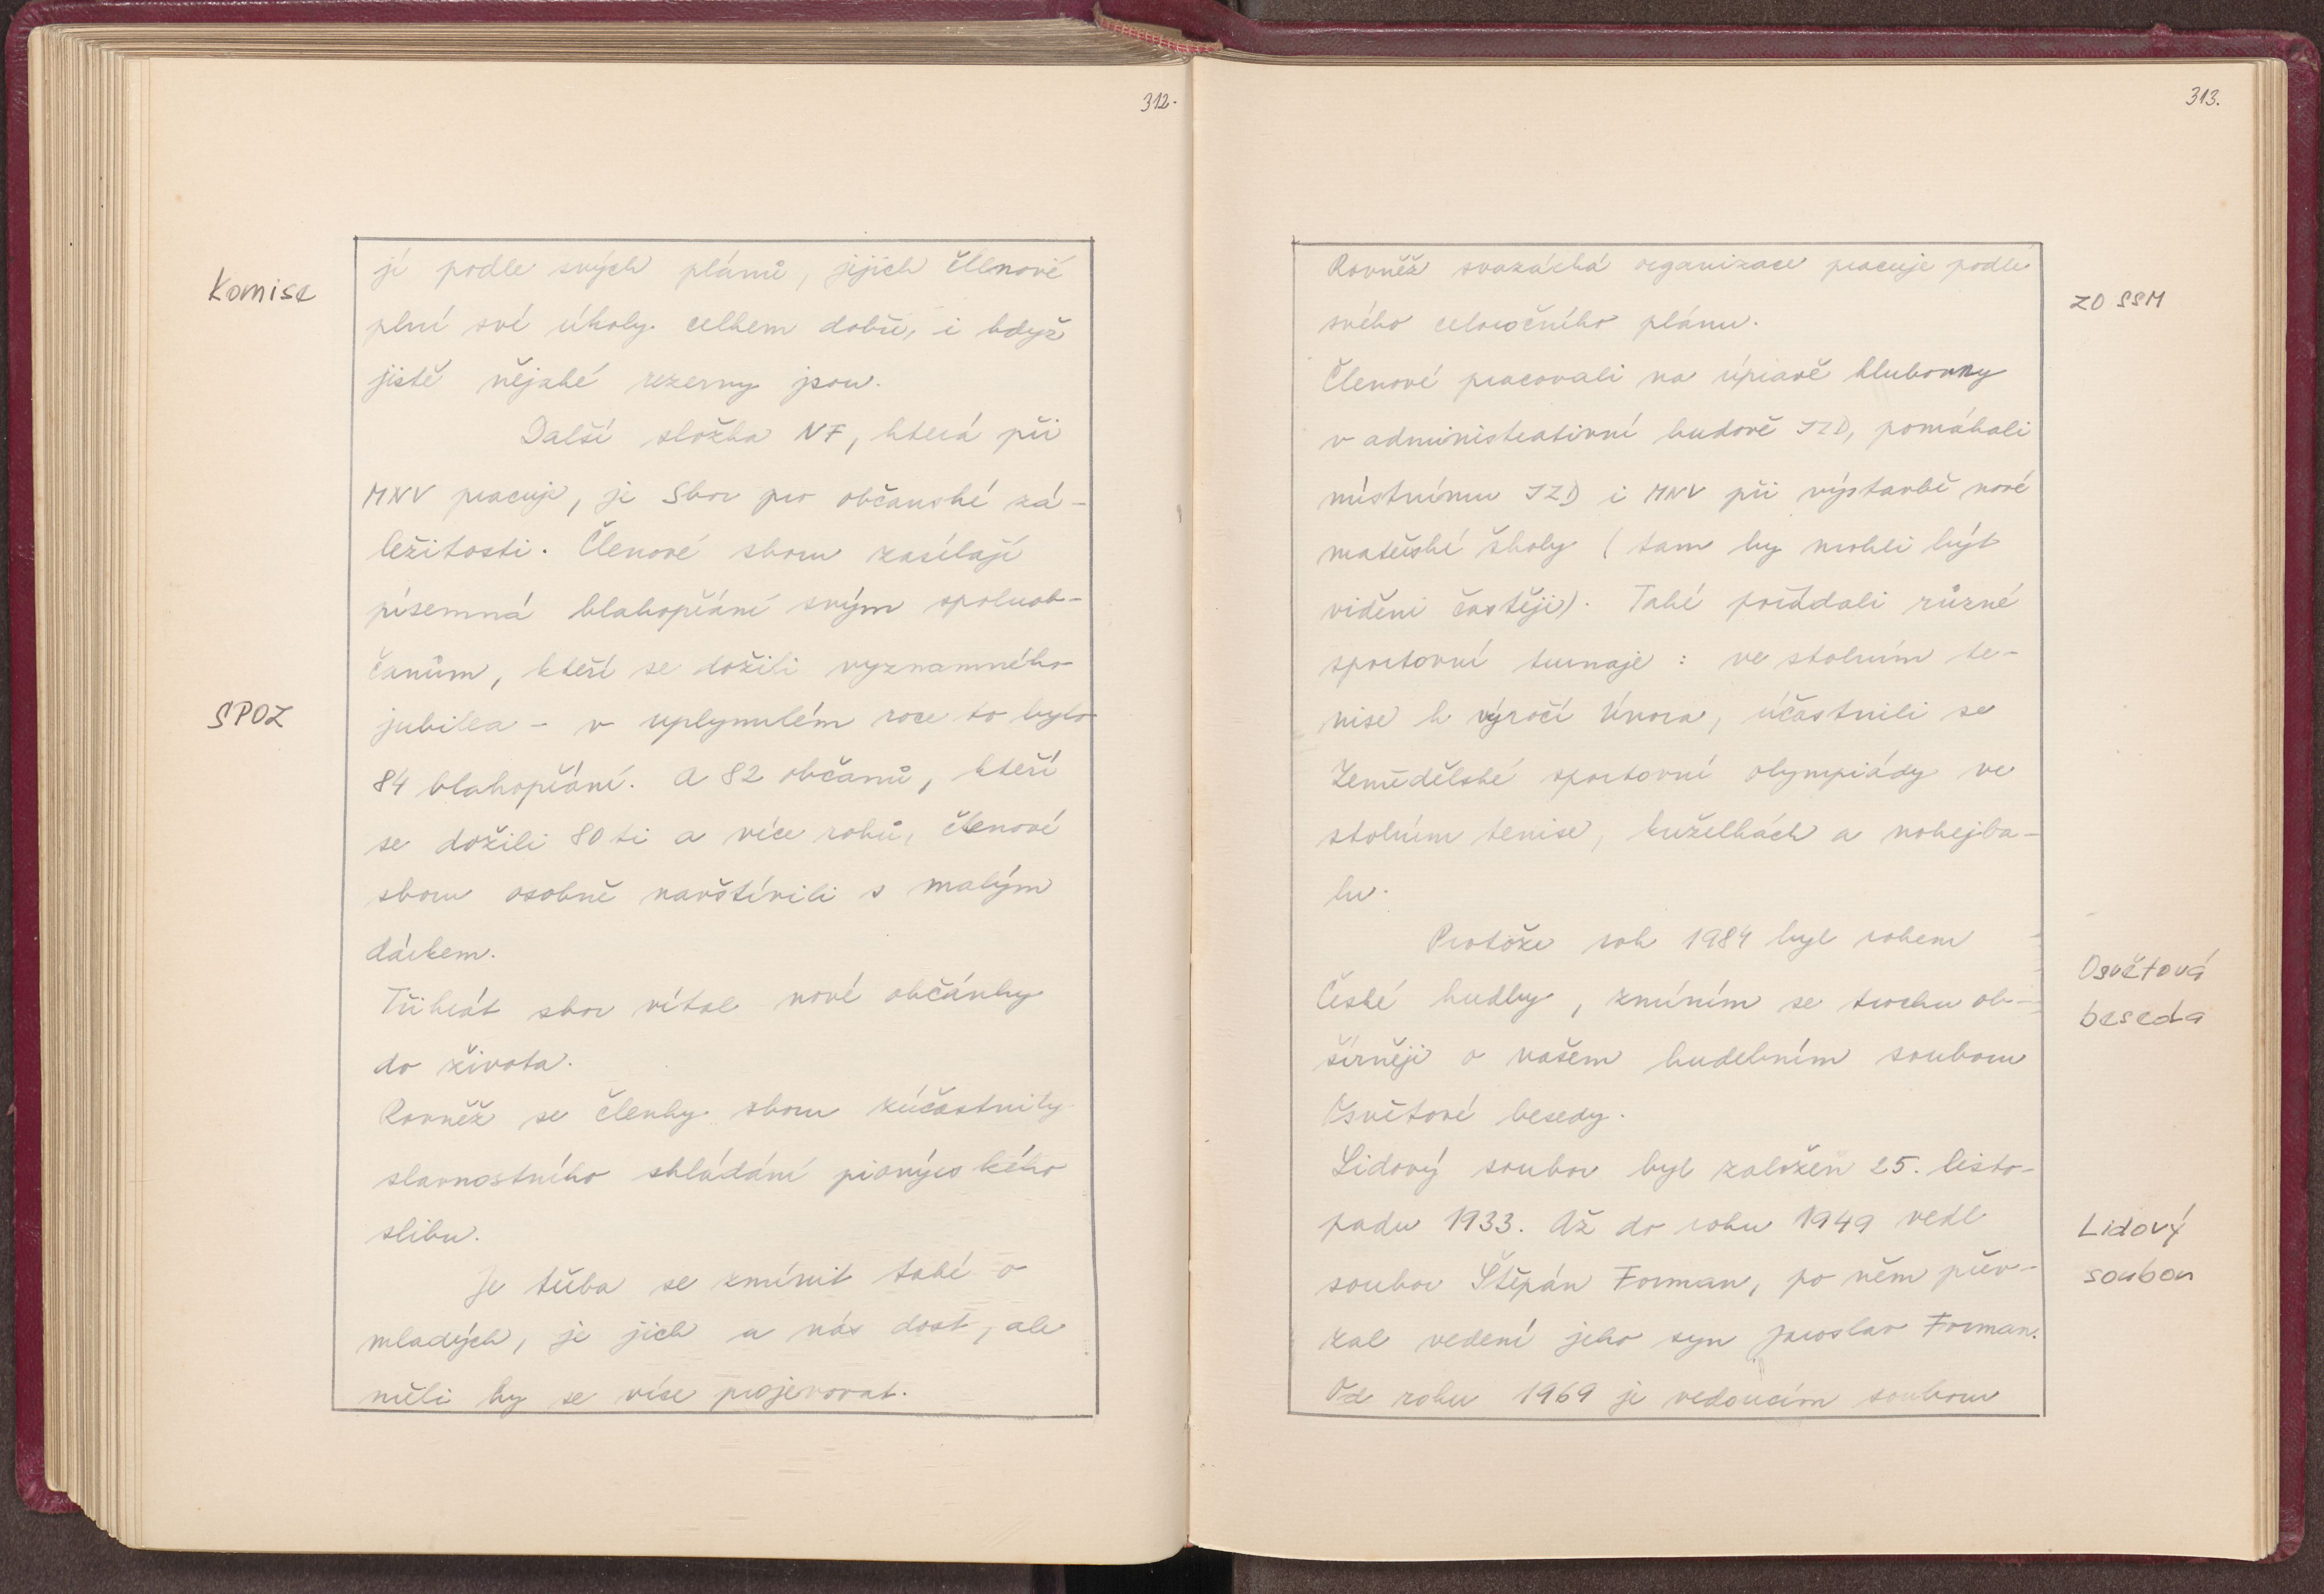 312.
Komise
jí podle svých plánů, jejich členové
plní své úkoly celkem dobře, i když
jistě nějaké rezervy jsou.
Další složka NF, která při
MNV pracuje, je Sbor pro občanské zá-
ležitosti. Členové sboru zasílají
písemná blahopřání svým spoluob-
čanům, kteří se dožili významného
SPOZ
jubilea - v uplynulém roce to bylo
84 blahopřání. A 82 občanů, kteří
se dožili 80 ti a více roků, členové
sboru osobně navštívili s malým
dárkem.
Třikrát sbor vítal nové občánky
do života.
Rovněž se členky sboru zúčastnily
slavnostního skládání pionýrského
slibu.
Je třeba se zmínit také o
mladých, je jich u nás dost, ale
měli by se více projevovat.
313.
Rovněž svazácká organizace pracuje podle
ZO SSM
svého celoročního plánu.
Členové pracovali na úpravě klubovny
v administrativní budově JZD, pomáhali
místnímu JZD i MNV při výstavbě nové
mateřské školy (tam by mohli být
viděni častěji). Také pořádali různé
sportovní turnaje : ve stolním te-
nise k výročí Února, účastnili se
Zemědělské sportovní olympiády ve
stolním tenise, kuželkách a nohejba-
lu.
Protože rok 1984 byl rokem
Osvětová
České hudby, zmíním se trochu ob-
beseda
šírněji o našem hudebním souboru
Osvětové besedy.
Lidový soubor byl založen 25. listo-
padu 1933. Až do roku 1949 vedl
Lidový
soubor Štěpán Forman, po něm přev-
soubor
zal vedení jeho syn Jaroslav Forman.
Od roku 1969 je vedoucím souboru